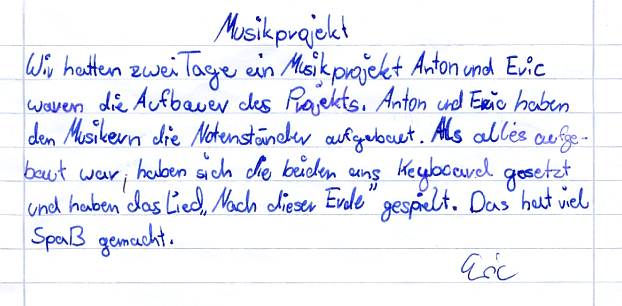 Musikprojekt
Wir hatten zwei Tage ein Musikprojekt Anton und Eric
waren die Aufbauer des Projekts. Anton und Eric haben
den Musikern die Notenständer aufgebaut. Als alles aufge-
baut war, haben sich die beiden ans Keyboard gesetzt
und haben das Lied „Nach dieser Erde" gespielt. Das hat viel
Spaß gemacht.
Eric